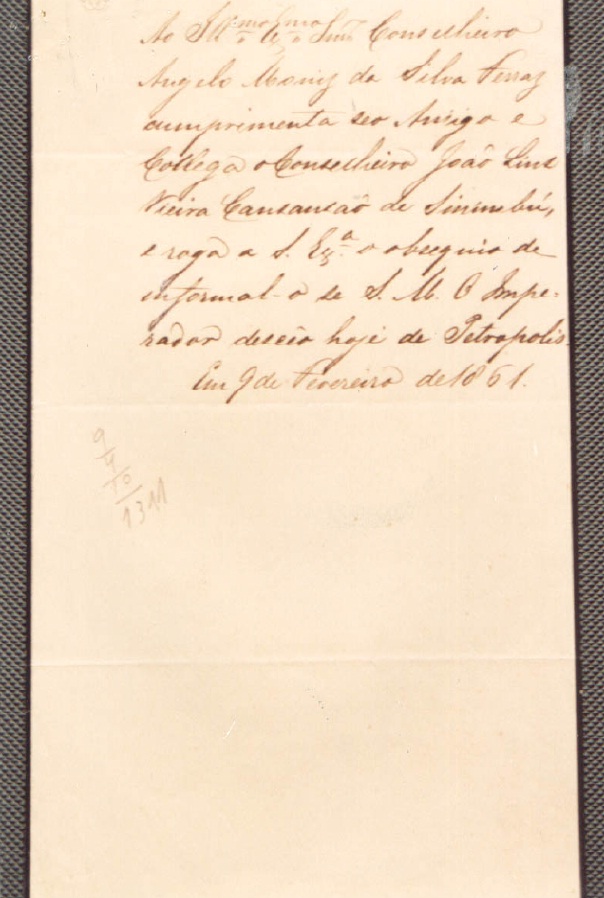 Ao Ill.mo Ex.mo Snr. Conselheiro
Angelo Moniz da Silva Ferraz
cumprimenta seo Amigo e
Collega o Conselheiro João Lins
Vieira Cansansaõ de Sinimbú,
e roga a S. Ex.a o obsequio de
informal-o se S. M. O Impe-
rador desceo hoje de Petropolis.
Em 9 de Fevereiro de 1861.
9
4
10
1311